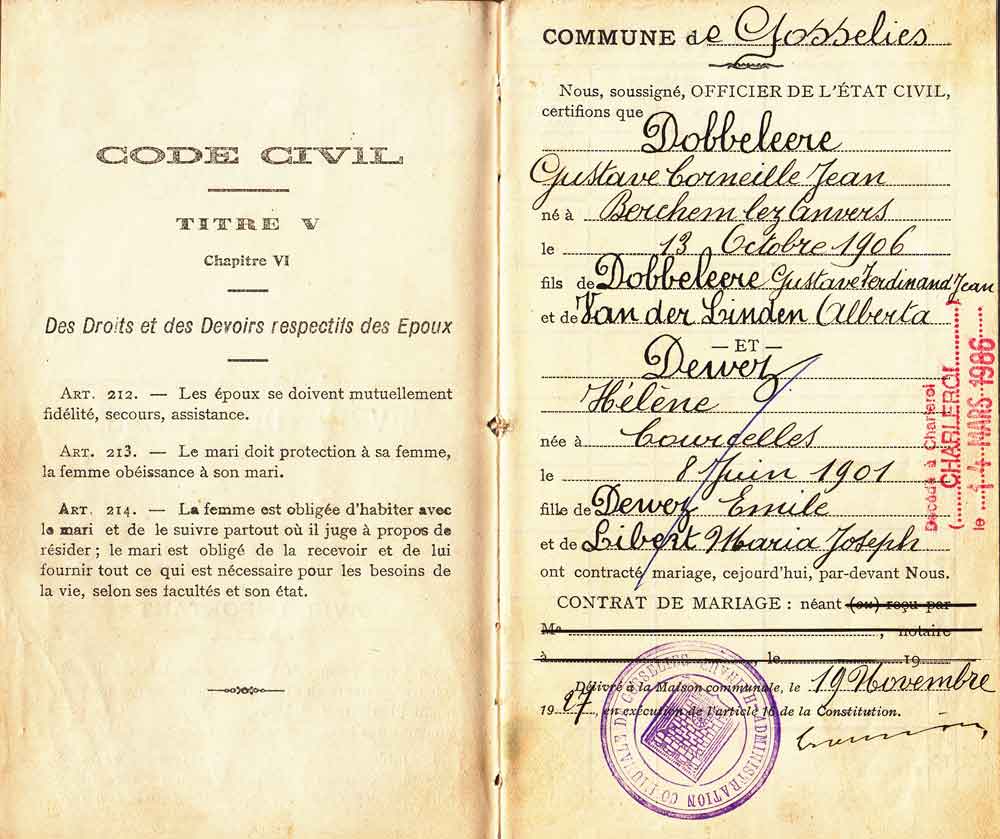 CODE CIVIL
TITRE V
Chapitre VI
Des Droits et des Devoirs respectifs des Epoux
ART. 212. — Les époux se doivent mutuellement
fidélité, secours, assistance.
ART. 213. — Le mari doit protection à sa femme,
la femme obéissance à son mari.
ART. 214. — La femme est obligée d'habiter avec
le mari et de le suivre partout où il juge à propos de
résider ; le mari est obligé de la recevoir et de lui
fournir tout ce qui est nécessaire pour les besoins de
la vie, selon ses facultés et son état.
COMMUNE de Gosselies
Nous, soussigné, OFFICIER DE L'ÉTAT CIVIL,
certifions que Dobbeleere
Gustave Corneille Jean
né à Berchem lez Anvers
le 13 Octobre 1906
fils de Dobbeleere Gustave Ferdinand Jean
et de Van der Linden Alberta
— ET —
Dewez
Hélène
née à Courcelles
le 8 Juin 1901
fille de Dewez Emile
et de Libert Maria Joseph
ont contracté mariage, cejourd'hui, par-devant Nous.
CONTRAT DE MARIAGE : néant (ou) reçu par
Me , notaire
à , le 19
Délivré à la Maison communale, le 19 Novembre
1927, en exécution de l'article 16 de la Constitution.
ADMINISTRATION COMMUNALE DE GOSSELIES
Décédé à Charleroi
(CHARLEROI)
le 14 MARS 1986